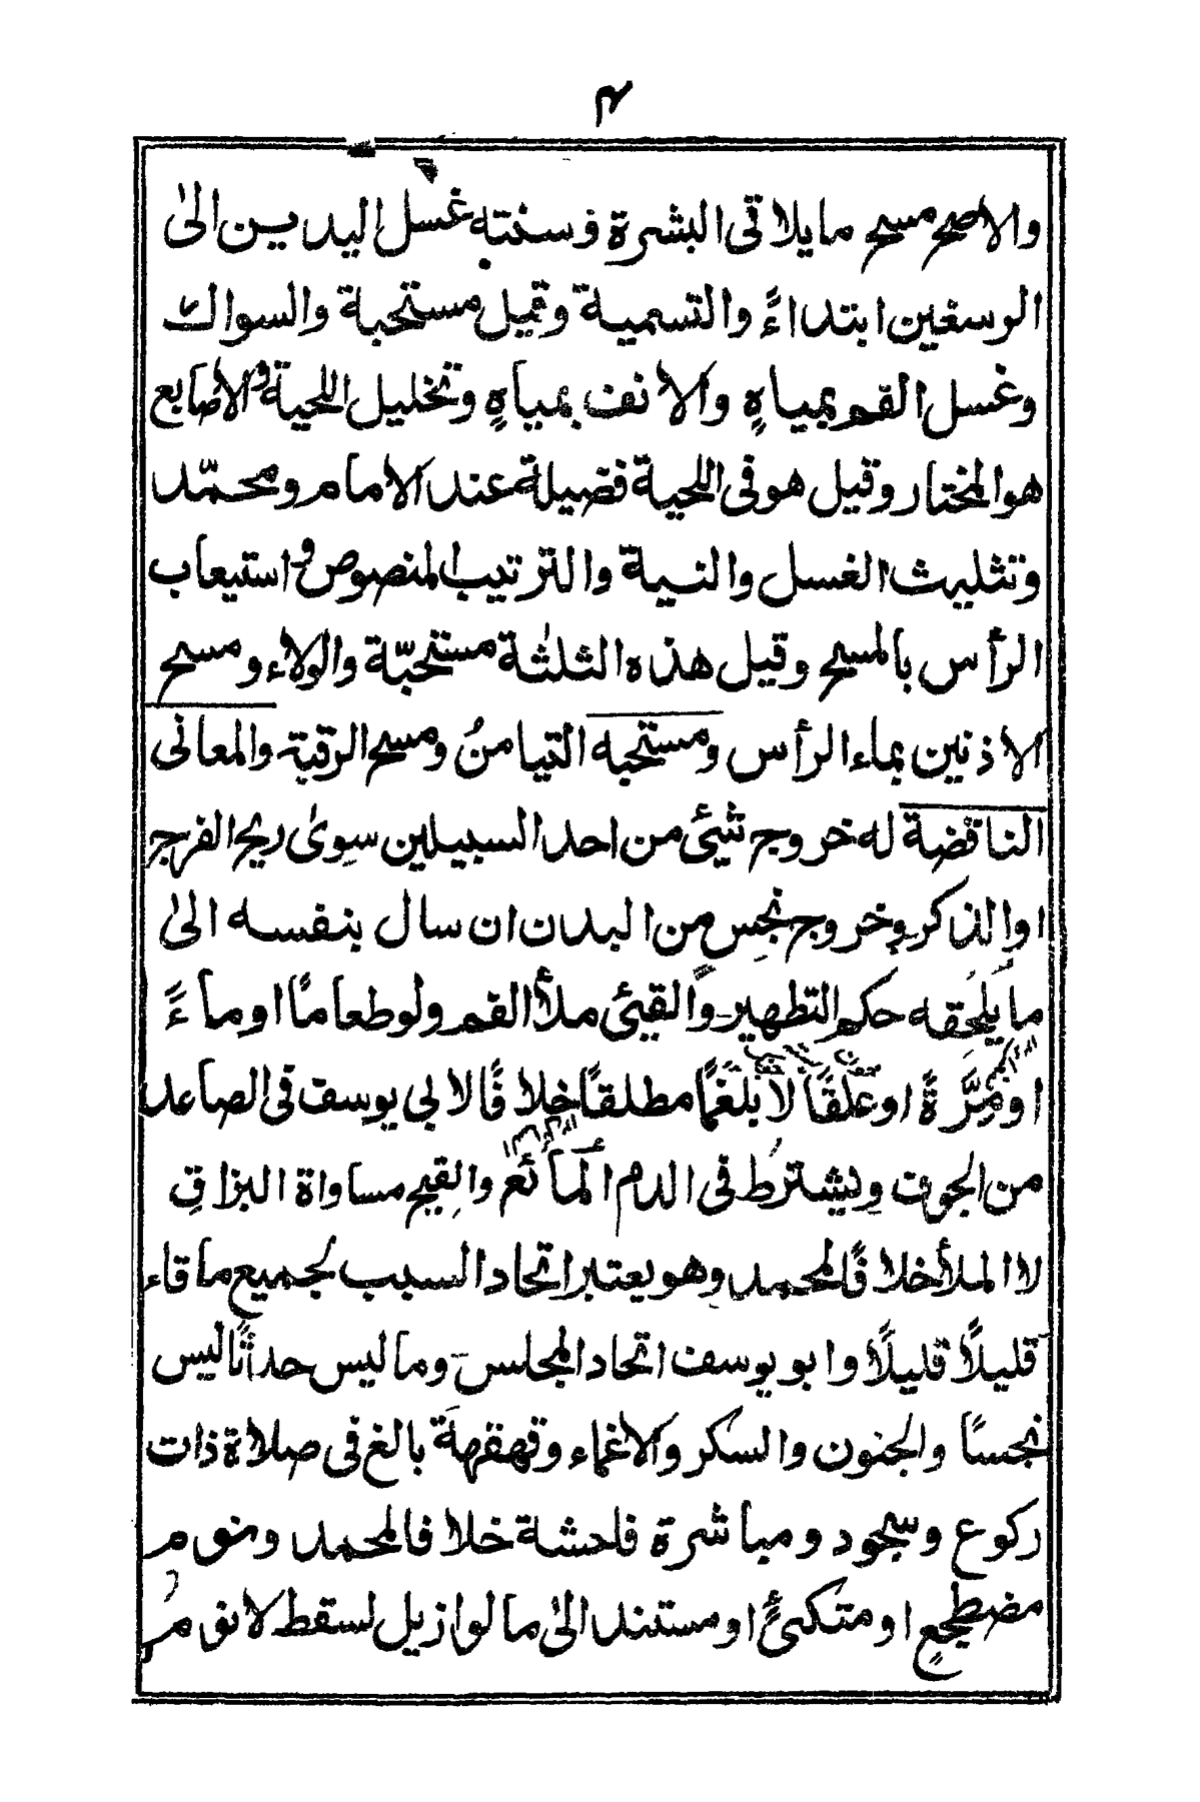 ٤
والاصح مسح ما يلاقى البشرة وسننه غسل اليدين الىٰ
الرسغين ابتداءً والتسمية وقيل مستحبة والسواك
وغسل الفم بمياهٍ والانف بمياهٍ وتخليل اللحية والاصابع
هو المختار وقيل هو فى اللحية فضيلة عند الامام ومحمّد
وتثليث الغسل والنية والترتيب المنصوص واستيعاب
الرأس بالمسح وقيل هذه الثلٰثة مستحبّة والولاء ومسح
الاذنين بماء الرأس ومستحبه التيامنُ ومسح الرقبة والمعانى
الناقضة له خروج شيئ من احد السبيلين سوىٰ ريح الفرج
اوالذكر وخروج نجس من البدن ان سال بنفسه الىٰ
ما يلحقه حكم التطهير والقيئى ملأ الفم ولو طعامًا او ماءً
او مِرَّةً او علقًا لا بلغمًا مطلقًا خلافًا لابى يوسف فى الصاعد
من الجوف ويشترط فى الدم المائع والقيح مساواة البزاقِ
لا الملأ خلافًا لمحمد وهو يعتبر اتحاد السبب لجميع ما قاء
قليلًا قليلًا وابو يوسف اتحاد المجلس وما ليس حدثًا ليس
نجسًا والجنون والسكر والاغماء وقهقهة بالغ فى صلاة ذات
ركوع وسجود ومباشرة فاحشة خلافا لمحمد ونوم
مضطجعٍ او متكئٍ او مستند الىٰ ما لو ازيل لسقط لا نوم